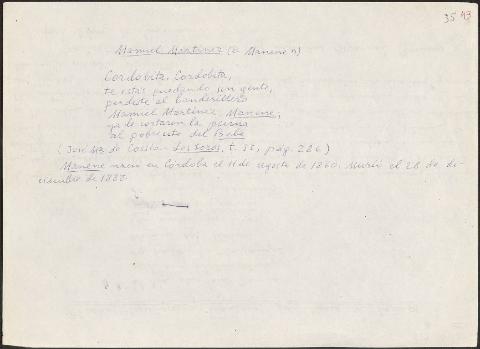 35 43
Manuel Martínez (a Manene)
Cordobita, Cordobita,
te estás quedando sin gente,
perdiste al banderillero
Manuel Martínez, Manene,
ya le cortaron la pierna
al pobrecito del Bebe
(José Mª de Cossío - Los Toros, t. II, pág. 286)
Manene nació en Córdoba el 11 de agosto de 1860. Murió el 28 de di-
ciembre de